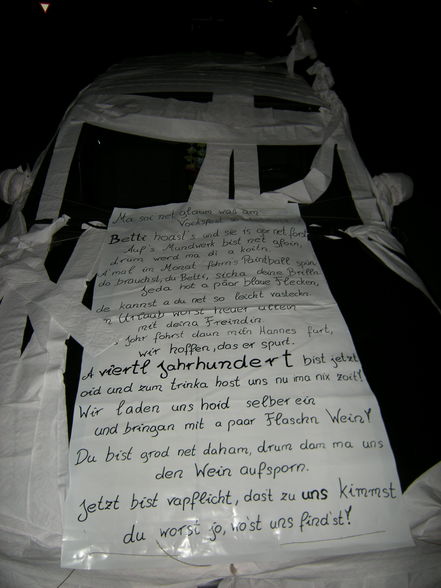 Ma soi net glaum was am
Betti hoast's und sie is gor net
Auf's Mundwerk bist net gfoin,
drum werd ma di a
A'mal im Monat fohrn's Paintball spün
do brauchst du, Betti, sicha deine Brilln.
Jeda hot a paar blaue Flecken,
de kannst a du net so leicht vasteckn.
n Urlaub worst heuer
mit deina Freindin.
Johr fohrst daun mitn Hannes furt,
wir hoffen, das er spurt.
A viertl Jahrhundert bist jetzt
oid und zum trinka host uns nu ma nix zoit!
Wir laden uns hoid selber ein
und bringan mit a paar Flaschn Wein!
Du bist grod net daham, drum dam ma uns
den Wein aufsporn.
Jetzt bist vapflicht, dast zu uns kimmst
du worst jo, wo'st uns find'st!